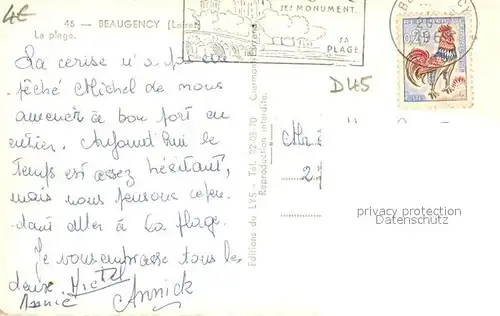 4€
45 — BEAUGENCY (Loiret)
La plage.
SES MONUMENT.
SA
PLAGE
D45
La cerise n'a pas em
pêché Michel de nous
amener à bon port en
entier. Aujourd'hui le
temps est assez hésitant,
mais nous pensons cepen.
dant aller à la plage.
Je vous embrasse tous les
deux.
Annie Annick
Editions du LYS - Tél. 92-05-70
Reproduction interdite.
privacy protection
Datenschutz